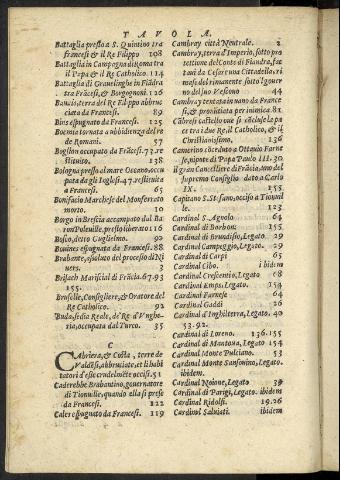 TAVOLA.
Battaglia presso a S. Quintino tra
francesi & il Re Filippo 108
Battaglia in Campagna di Roma tra
il Papa & il Re Catholico. 114
Battaglia di Grauelinghe in Fiādra
tra Frācesi, & Borgognoni. 126
Bauais, terra del Re Filippo abbruc
ciata da Francesi. 89
Bins espugnato da Francesi. 125
Boemia tornata a obbidienza del re
de Romani. 57
Boglion occupato da Frācesi. 73. re
stituito. 138
Bologna presso al mare Occano, occu
pata dagli Inglesi. 47. restituita
a Francesi. 65
Bonifacio Marchese del Monferrato
morto. 10
Borgo in Brescia occampato dal Ba
ron Poleuille. presto liberato 116
Bosco, detto Guglielmo. 90
Bouines espugnata da Francesi. 88
Brabante, assoluto del processo di Ni
uers. 3
Brisach Mariscial di Frācia. 67. 93
155.
Bruselle, Consigliere, & Oratore del
Re Catholico. 92
Buda, sedia Reale, de' Re d'Vnghe-
ria, occupata dal Turco. 35
C
Cabriera, & Costa, terre de
Valdesi, abbruciate, et li habi
tatori d'esse crudelmēte occisi. 51
Caderebbe Brabantino, gouernatore
di Tionuille, quando ella si prese
da Francesi. 122
Cales espugnato da Francesi. 119
Cambray città Neutrale. 2
Cambray, terra d'Imperio, sotto pro
tettione del Conte di Fiandra, fat
taui da Cesare una Cittadella, ri
masa del rimanente sotto'l gouer
no del suo Vescouo 44
Cambray tentata in uano da France
si, & prohibita per inimica 81
Cābresi castello oue si cōcluse la pa
ce tra i due Re, il Catholico, & il
Christianissimo. 136
Camerino: ceduto a Ottauio Farne
se, nipote di Papa Paulo III. 30
il gran Cancelliere di Frācia, uno del
supremo Consiglio dato a Carlo
IX. 155.
Capitano S. Stefano, occiso a Tionuil
le. 123
Cardinal S. Agnolo 64
Cardinal di Borbon. 155.
Cardinal di Brundisio, Legato. 29
Cardinal Campeggio, Legato. 29
Cardinal di Carpi 65
Cardinal Cibo. ibidem
Cardinal Crescentio, Legato 68
Cardinal Emps, Legato. 154
Cardinal Farnese 64
Cardinal Gaddi 26
Cardinal d'Inghilterra, Legato. 40
53. 92.
Cardinal di Loreno. 136. 155
Cardinal di Mantoua, Legato 154
Cardinal Monte Pulciano. 53
Cardinal Monte Sansonino, Legato.
ibidem.
Cardinal Noione, Legato 39
Cardinal di Parigi, Legato. ibidem
Cardinal Ridolfi. 19. 26
Cardinal Saluiati. ibidem